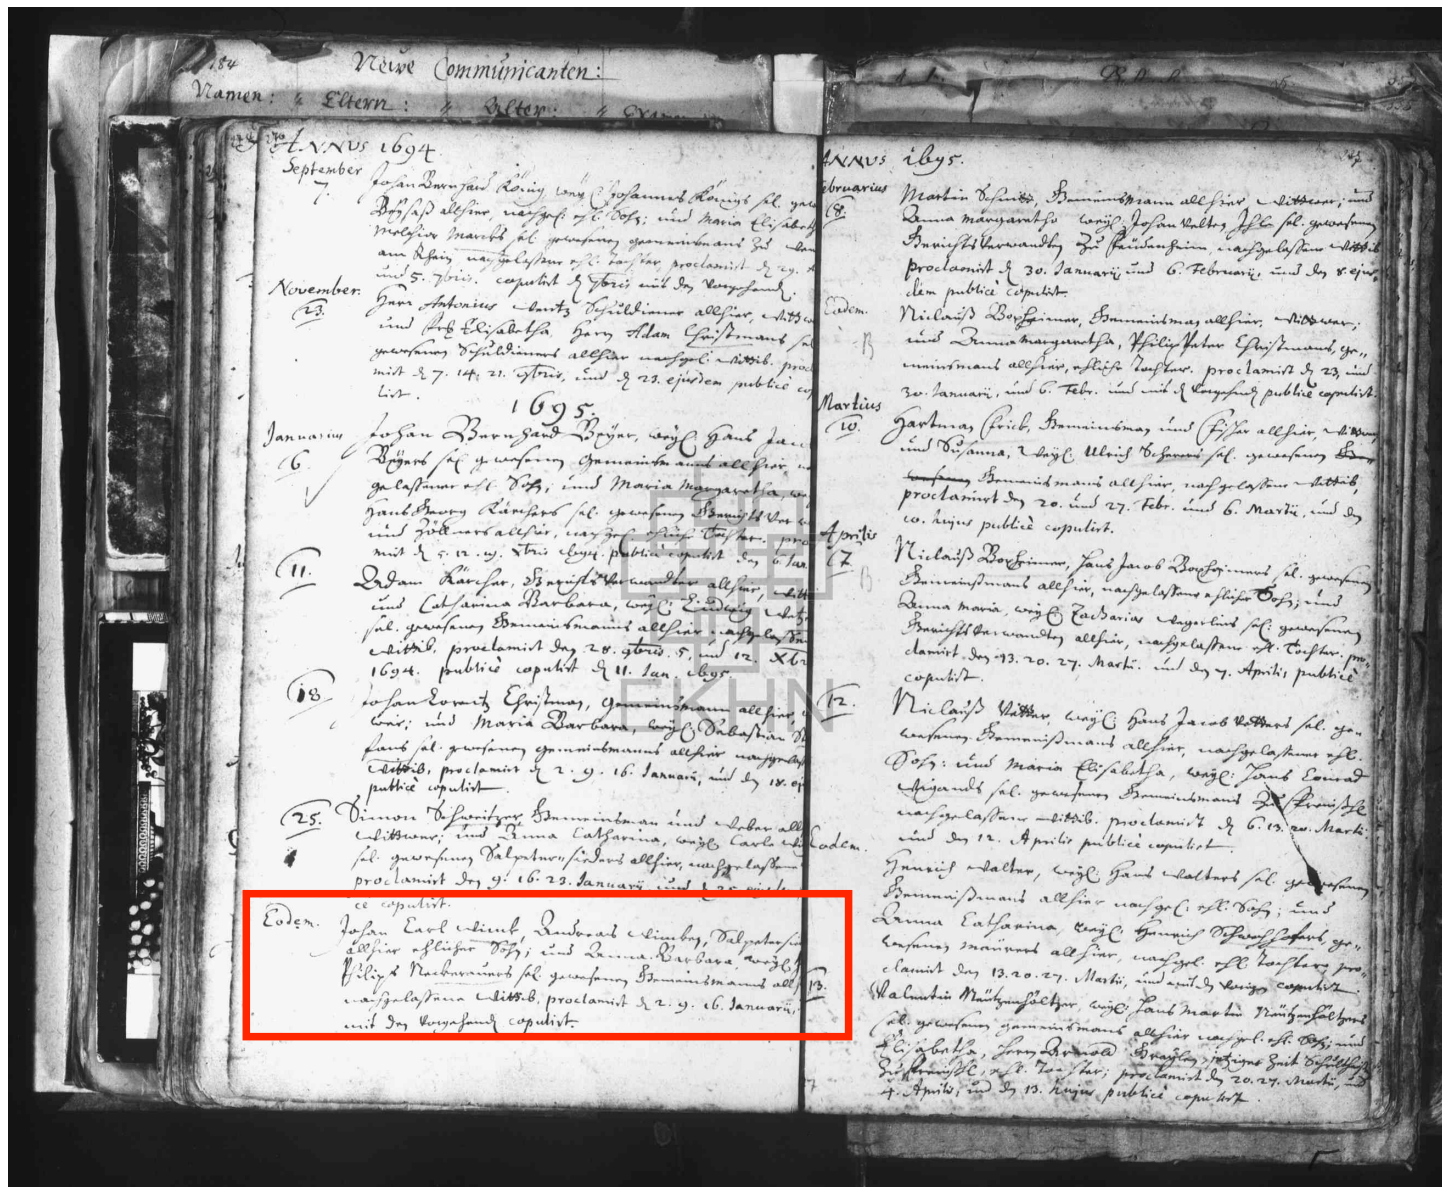 184
Neüe Communicanten:
Namen: " Eltern: " Alter: "
ANNUS 1694.
September
7.
Johan Bernhard König, weyl. Johannes Königs sel.
Beysaß allhier, nachgel. ehl. Sohn; und Maria Elisabeth
Melchior sel. gewesenen gemeinsmans zu
am Rhein nachgelaßene ehl. Tochter, proclamirt d. 29.
und 5. 7bris. copulirt d. 7bris mit den Vorgehend.
November.
23.
Herr Antonius Schuldiener allhier, Wittwer
und Fr. Elisabetha, Herrn Adam Christmans sel.
gewesenen Schuldieners allhier nachgel. Wittib. pro
mirt d. 7. 14. 21. 9bris, und d. 23. ejusdem publicè co
lirt.
1695.
Januarius
6.
Johan Bernhard Beyer, weyl. Hans Jac
Beyers sel. gewesenen Gemeinsmans allhier, n
gelassener ehl. Sohn; und Maria Margaretha, we
Hans Georg Kärchers sel. gewesenen Gerichtsver
und Zöllners allhier, nachgel. ehliche Tochter. pro
mirt d. 5. 12. 19. Xbris publicè copulirt den 6. Jan.
11.
Adam Kärcher, Gerichtsverwandter allhier, Witt
und Catharina Barbara, weyl. Ludwig
sel. gewesenen Gemeinsmanns allhier nachgelassen
Wittib, proclamirt den 28. 9bris. 5. und 12. Xbr
1694. publicè copulirt d. 11. Jan. 1695.
18.
Johan Lorentz Christman, Gemeinsmann allhier,
wer; und Maria Barbara, weyl. Sebastian
sel. gewesenen gemeinsmanns allhier nachgelaß
Wittib, proclamirt d. 2. 9. 16. Januarii, und den 18. ej
publicè copulirt
25.
Simon Schweitzer Gemeinsman und Weber all
Wittwer, und Anna Catharina, weyl. Carle
sel. gewesenen Salpetersieders allhier, nachgelassene
proclamirt den 9. 16. 23. Januarii und d. 25.
ce copulirt.
Eodem.
Johan Carl Andreas Salpetersie
allhier ehlicher Sohn; und Anna Barbara, weyl.
Philips Neckerauers sel. gewesenen Gemeinsmanns all
nachgelassene Wittib, proclamirt d. 2. 9. 16. Januarii,
mit den Vorgehend copulirt.
ANNUS 1695.
ebruarius
8.
Martin Gemeinsmann allhier Wittwer; und
Anna Margaretha weyl. Johan Velten Ihle sel. gewesenen
Gerichtsverwandten zu Feüdenheim, nachgelassene Wittib
proclamirt d. 30. Januarii und 6. Februarii, und den 8. ejus
dem publicè copulirt.
Eodem.
B
Niclauß Borheimer, Gemeinsman allhier, Wittwer;
und Anna Margaretha, Philip Peter Christmans, ge-
meinsmans allhier, ehliche Tochter. proclamirt d. 23. und
30. Januarii, und 6. Febr. und mit d. Vorgehend publicè copulirt.
Martius
10.
Hartman Frick, Gemeinsman und Fischer allhier, Wittwer,
und Susanna, Weyl. Ulrich Scherers sel. gewesenen
Gemeinsmans allhier, nachgelassene Wittib,
proclamirt den 20. und 27. Febr. und 6. Martii, und den
10. hujus publicè copulirt.
Aprilis
7.
B
Niclauß Borheimer, Hans Jacob Borheimers sel. gewesenen
Gemeinsmans allhier, nachgelassener ehlicher Sohn; und
Anna Maria, weyl. Zacharias sel. gewesenen
Gerichtsverwandten allhier, nachgelassene ehl. Tochter. pro-
clamirt den 13. 20. 27. Martii. und den 7. Aprilis publicè
copulirt.
12.
Niclauß Vetter, weyl. Hans Jacob Vetters sel. ge-
wesenen Gemeinsmans allhier, nachgelassener ehl.
Sohn: und Maria Elisabetha, weyl. Hans Conrad
Wigands sel. gewesenen Gemeinsmans zu
nachgelassene Wittib. proclamirt d. 6. 13. 20. Martii
und den 12. Aprilis publicè copulirt.
Eodem.
Henrich Walter, weyl. Hans Walters sel. gewesenen
Gemeinsmans allhier nachgel. ehl. Sohn; und
Anna Catharina, weyl. Henrich ge-
wesenen Maürers allhier, nachgel. ehl. Tochter, pro-
clamirt den 13. 20. 27. Martii, und mit den Vorigen copulirt.
13.
Valentin Nützenhöltzer, weyl. Hans Martin Nützenhöltzers
sel. gewesenen gemeinsmans allhier nachgel. ehl. Sohn; und
Elisabetha, Herrn Arnold jetziger Zeit Schultheiß
ehl. Tochter; proclamirt den 20. 27. Martii,
4. Aprilis, und den 13. hujus publicè copulirt.
CKHN